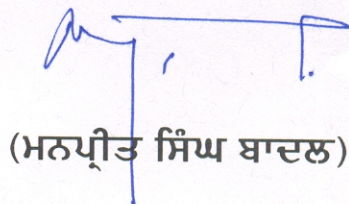 (ਮਨਪ੍ਰੀਤ ਸਿੰਘ ਬਾਦਲ)